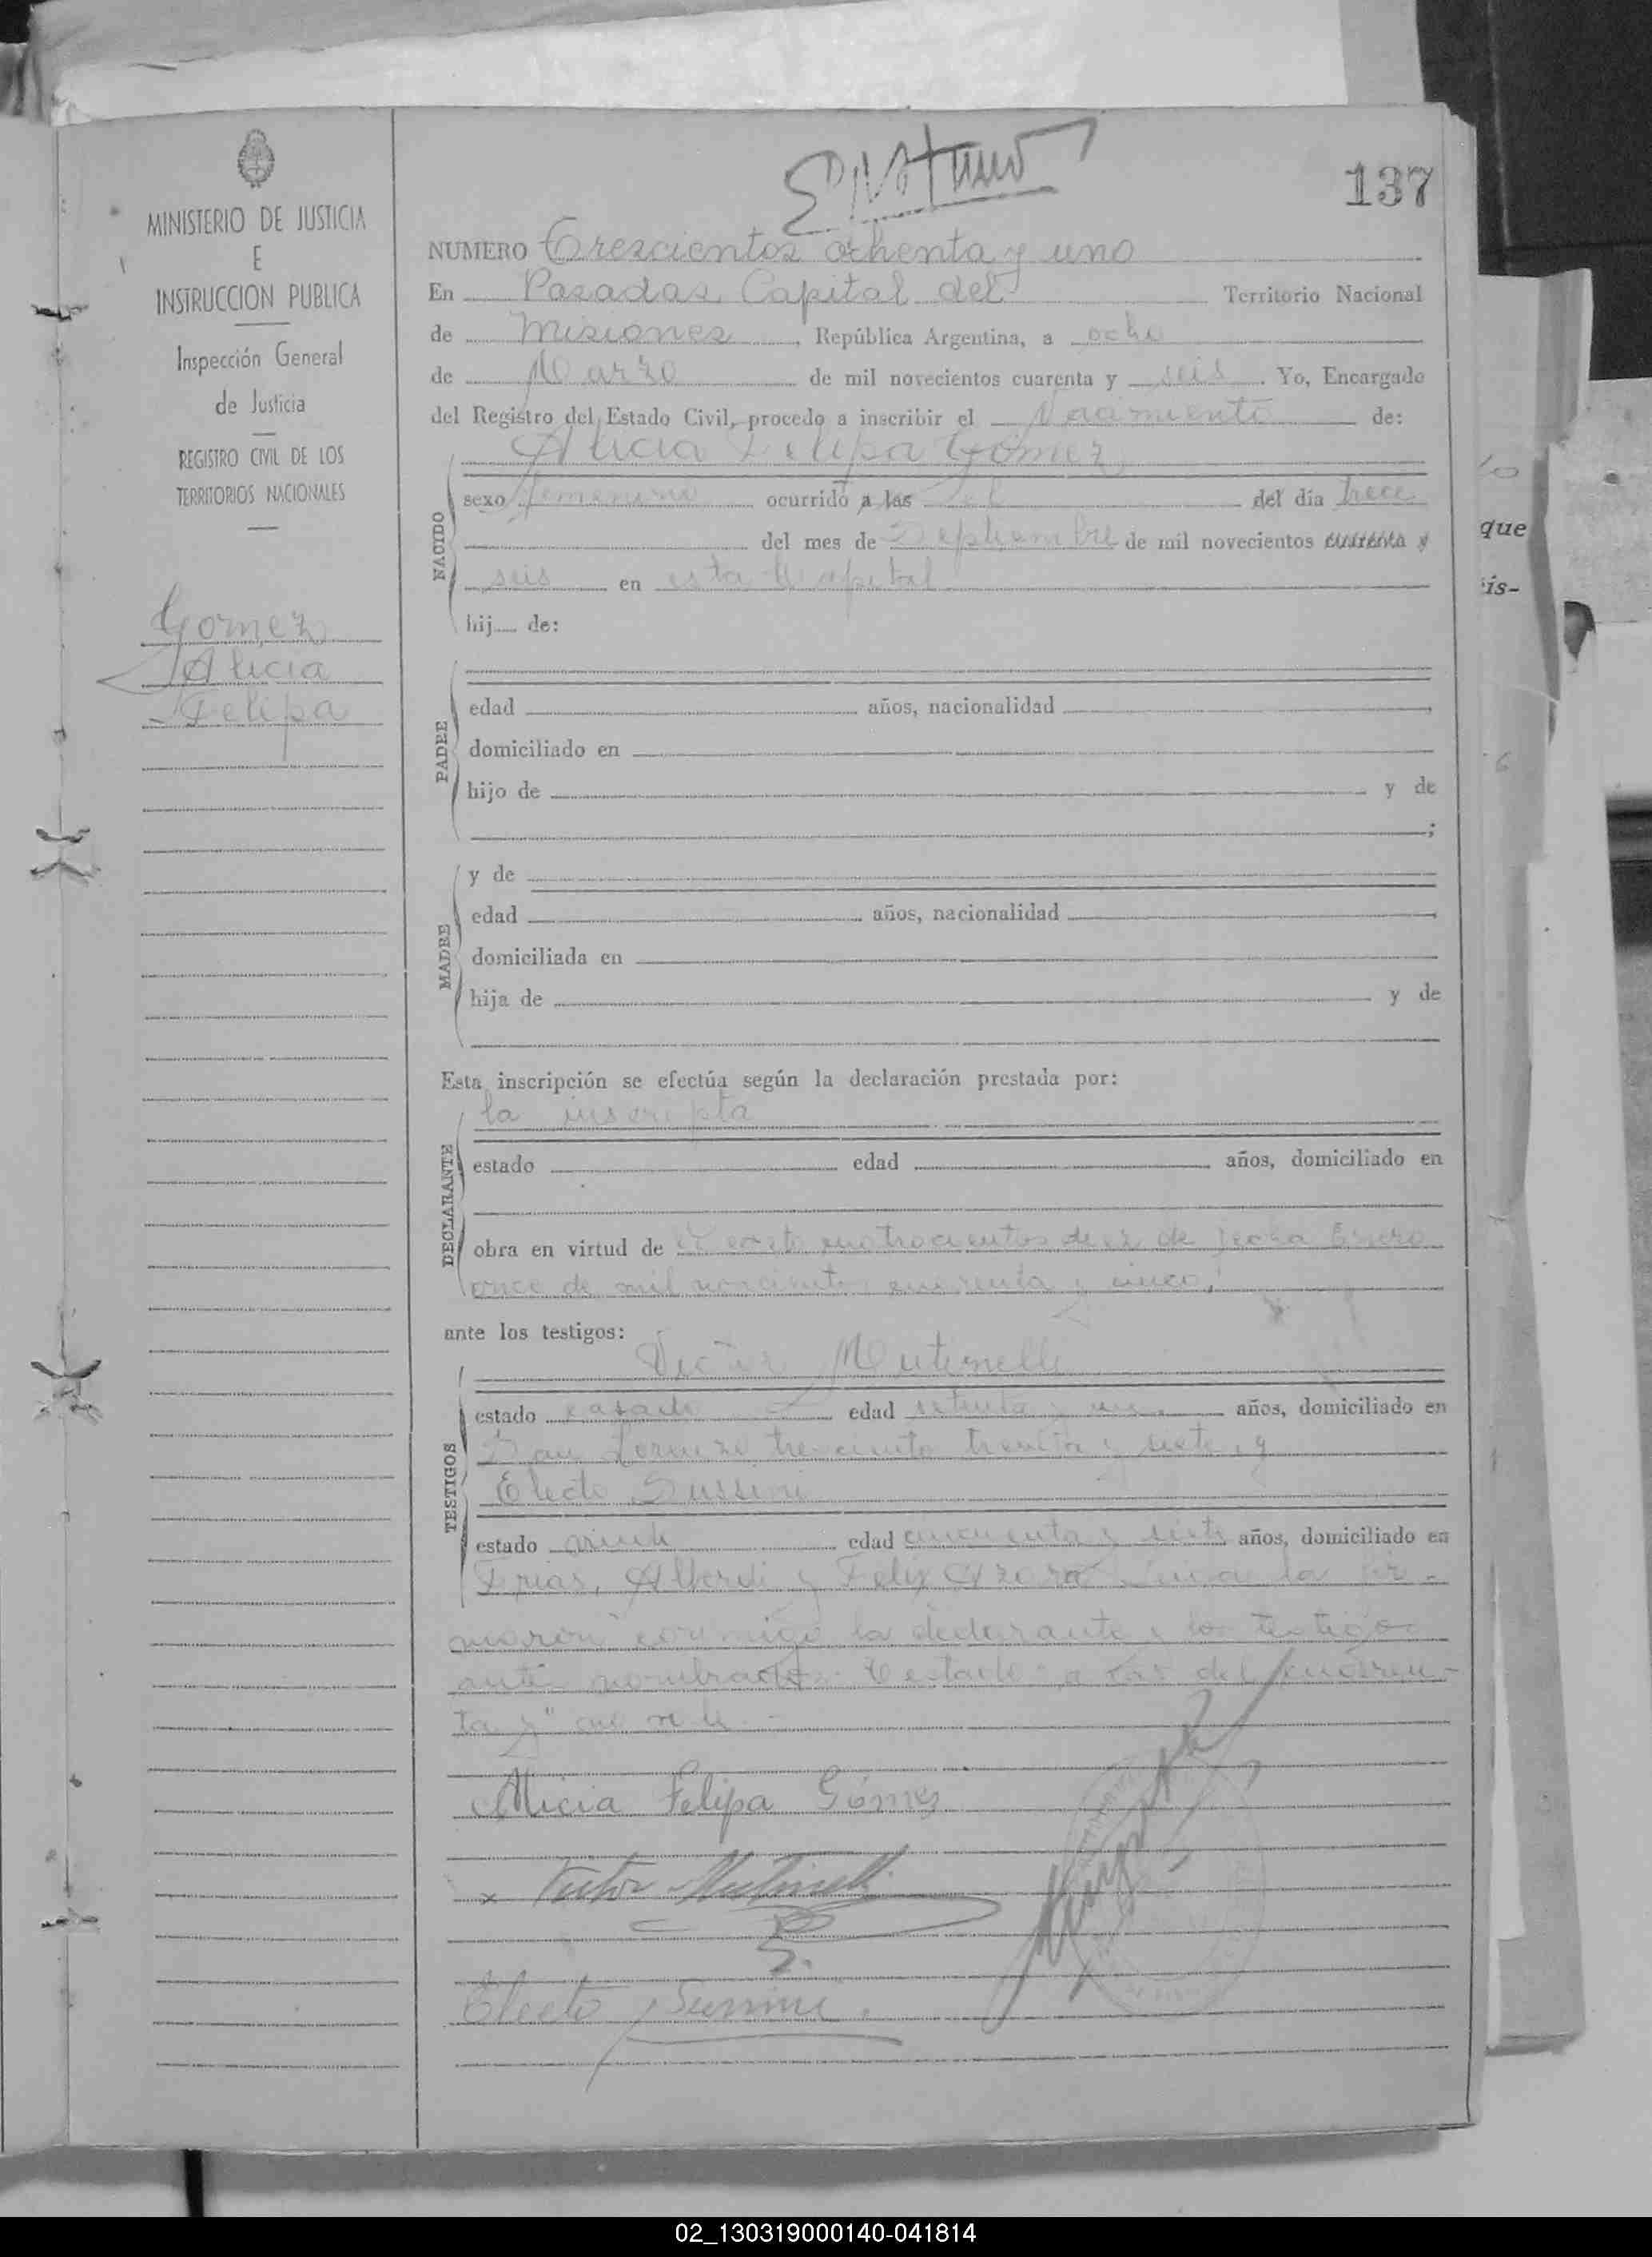 137
MINISTERIO DE JUSTICIA
E
INSTRUCCION PUBLICA
Inspección General
de Justicia
REGISTRO CIVIL DE LOS
TERRITORIOS NACIONALES
Gomez
Alicia
Felipa
NUMERO Trescientos ochenta y uno
En Posadas Capital del Territorio Nacional
de Misiones, República Argentina, a ocho
de Marzo de mil novecientos cuarenta y seis. Yo, Encargado
del Registro del Estado Civil, procedo a inscribir el Nacimiento de:
Alicia Felipa Gomez
NACIDO
sexo femenino ocurrido a las del día trece
del mes de Septiembre de mil novecientos cuarenta y
seis en esta Capital
hij de:
PADRE
edad años, nacionalidad
domiciliado en
hijo de y de
;
MADRE
y de
edad años, nacionalidad
domiciliada en
hija de y de
Esta inscripción se efectúa según la declaración prestada por:
la inscripta
DECLARANTE
estado edad años, domiciliado en
obra en virtud de cuatrocientos diez de fecha Enero
once de mil novecientos cuarenta y cinco,
ante los testigos:
Victor Mutinelli
TESTIGOS
estado casado edad setenta y años, domiciliado en
San Lorenzo trescientos treinta y siete, y
Electo Sussini
estado viudo edad cincuenta y siete años, domiciliado en
Frias, Alberdi y Felix Azara
conmigo la declarante y los testigos
ante nombrados. Testado: a las del cuaren-
ta y" no vale
Alicia Felipa Gómez
x Victor Mutinelli
Electo Sussini.
que
is-
02_130319000140-041814